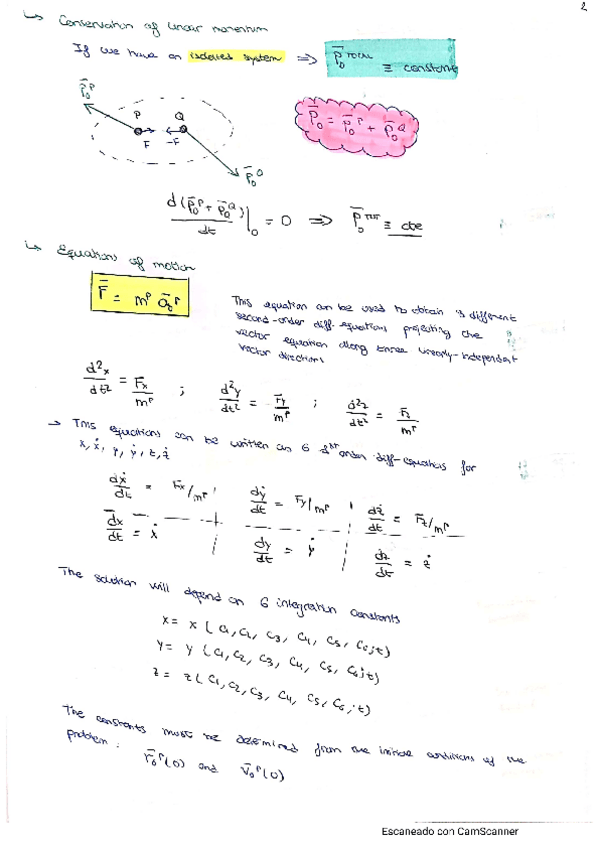 2
↳ Conservation of linear momentum
If we have an isolated system ⇒ p̄₀ᵀᴼᵀᴬᴸ ≡ constant
p̄₀ᴾ
P Q
F -F
p̄₀Q
p̄₀ = p̄₀ᴾ + p̄₀Q
d(p̄₀ᴾ + p̄₀Q)/dt |₀ = 0 ⇒ p̄₀ᵀᴼᵀ ≡ cte
↳ Equations of motion
F̄ = mᴾ ā₀ᴾ
This equation can be used to obtain 3 different
second-order diff-equations projecting the
vector equation along three linearly-independent
vector directions
d²x/dt² = Fx/mᴾ ; d²y/dt² = Fy/mᴾ ; d²z/dt² = Fz/mᴾ
→ This equations can be written as 6 1st order diff-equations for
x, ẋ, y, ẏ, z, ż
dẋ/dt = Fx/mᴾ dẏ/dt = Fy/mᴾ dż/dt = Fz/mᴾ
dx/dt = ẋ dy/dt = ẏ dz/dt = ż
The solution will depend on 6 integration constants
x = x (c₁, c₂, c₃, c₄, c₅, c₆; t)
y = y (c₁, c₂, c₃, c₄, c₅, c₆; t)
z = z (c₁, c₂, c₃, c₄, c₅, c₆; t)
The constants must be determined from the initial conditions of the
problem: r̄₀ᴾ(0) and v̄₀ᴾ(0)
Escaneado con CamScanner